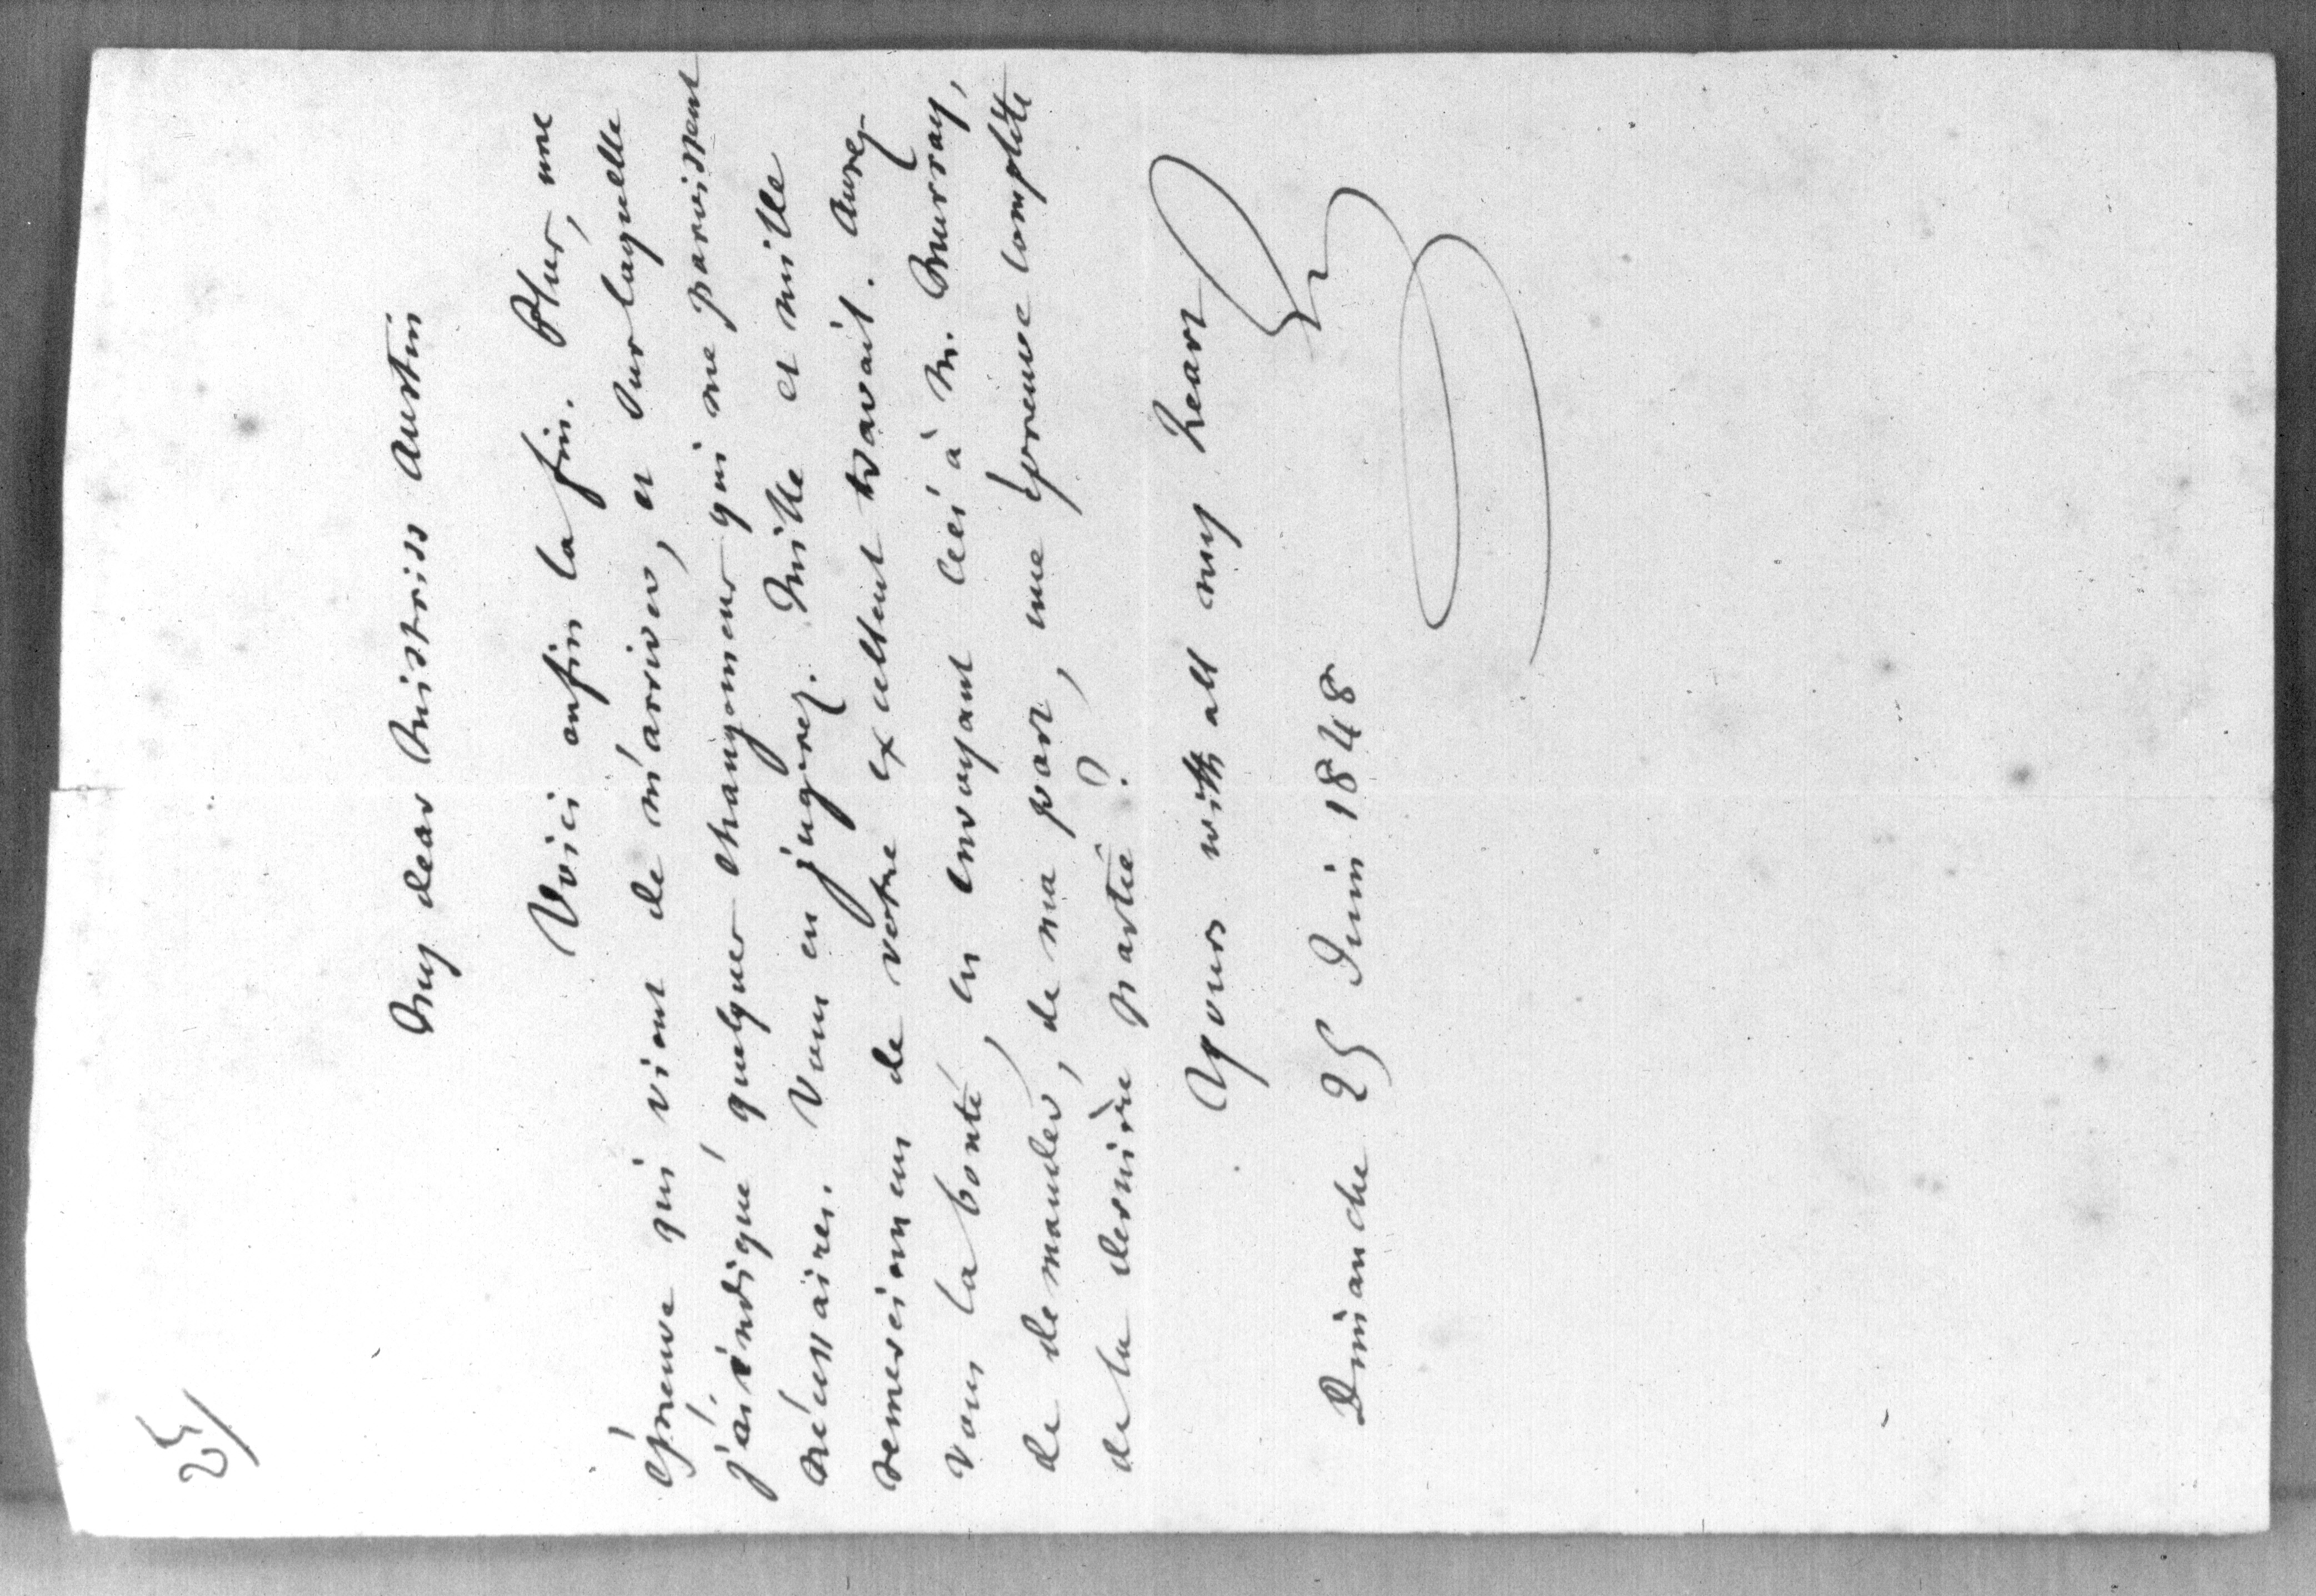 25/
My dear Mistriss Austin
Voici enfin la fin. Plus, une
épreuve qui vient de m'arriver, et sur laquelle
j'ai indiqué quelques changemens qui me paroissent
nécessaires. Vous en jugerez. Mille et mille
remerciemens de votre excellent travail. Aurez
vous la bonté, en envoyant ceci à M. Murray,
de demander, de ma part, une épreuve complette
de la dernière partie?
Yours with all my heart
Dimanche 25 Juin 1848